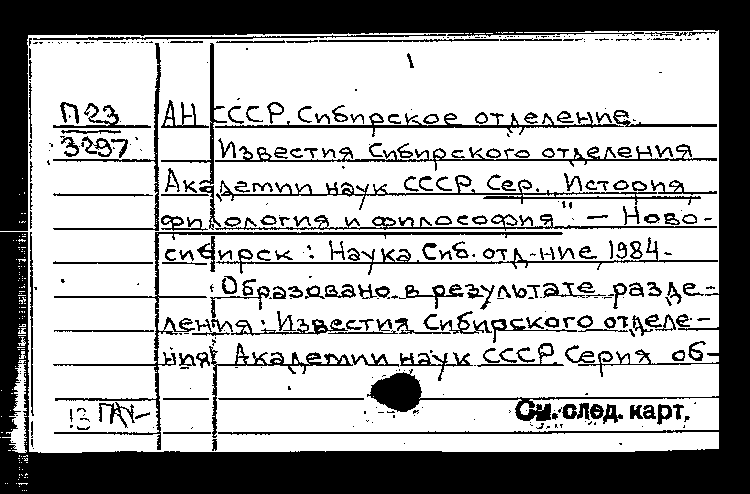 1
П23 АН СССР. Сибирское отделение.
3297 Известия Сибирского отделения
Академии наук СССР. Сер. „История,
филология и философия" – Ново-
сибирск: Наука. Сиб. отд-ние, 1984-
Образовано в результате разде-
ления: Известия Сибирского отделе-
ния Академии наук СССР. Серия об-
13
См. след. карт.